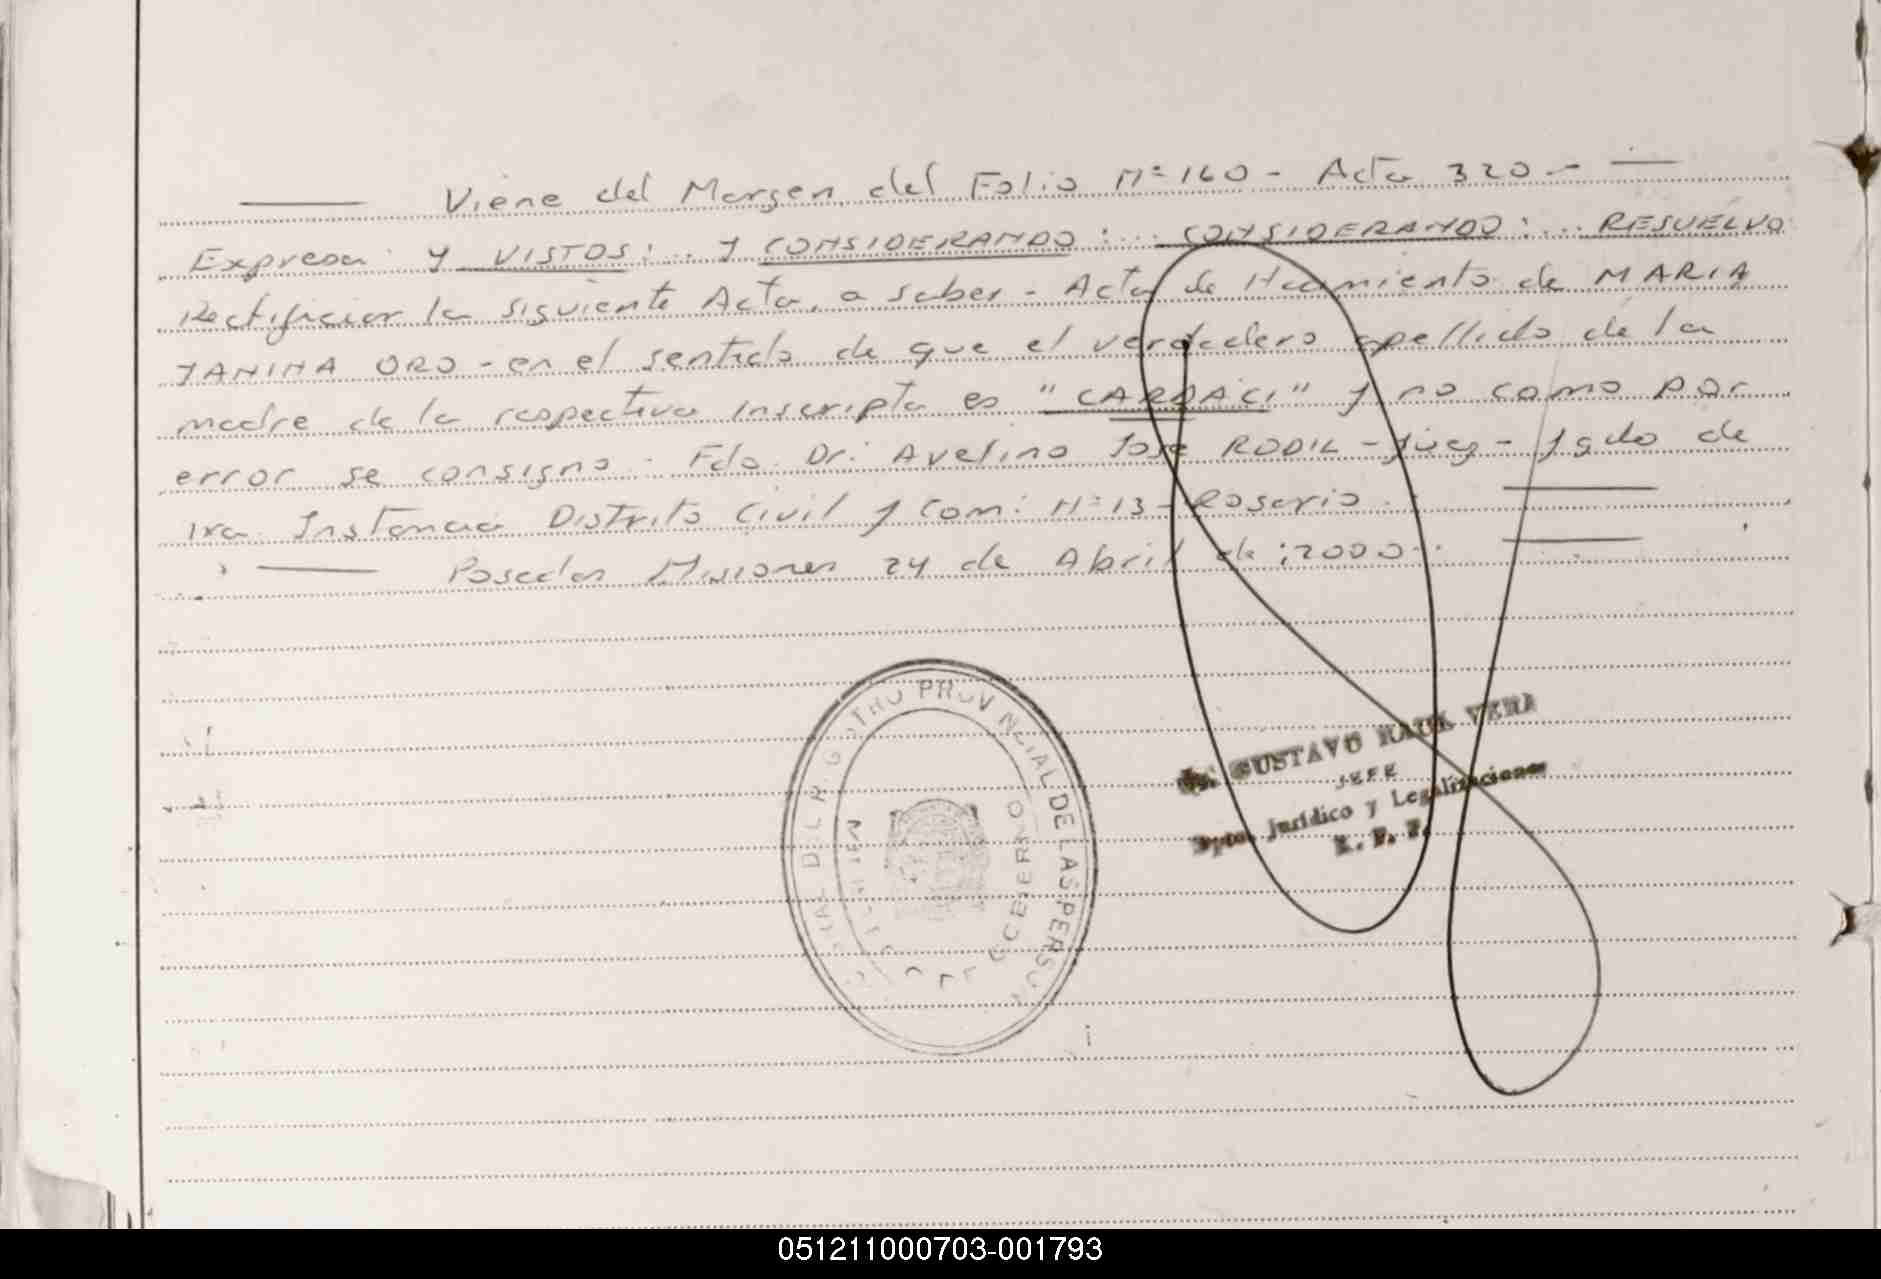 Viene del Margen del Folio Nº 160 - Acta 320 -
Expresa: Y VISTOS: ... Y CONSIDERANDO: ... CONSIDERANDO: ... RESUELVO
Rectificar la siguiente Acta, a saber - Acta de Nacimiento de MARIA
YANINA ORO - en el sentido de que el verdadero apellido de la
madre de la respectiva inscripta es "CARDACI" y no como por
error se consigno - Fdo. Dr. Avelino José RODIL - Juez - Jgdo de
1ra. Instancia Distrito Civil y Com. Nº 13 - Rosario.
Posadas Misiones 24 de Abril de 2000 -
PROVINCIAL DE LAS PERSON
GUSTAVO RAUL VERA
JEFE
Dpto. Jurídico y Legalizaciones
R. P. P.
051211000703-001793